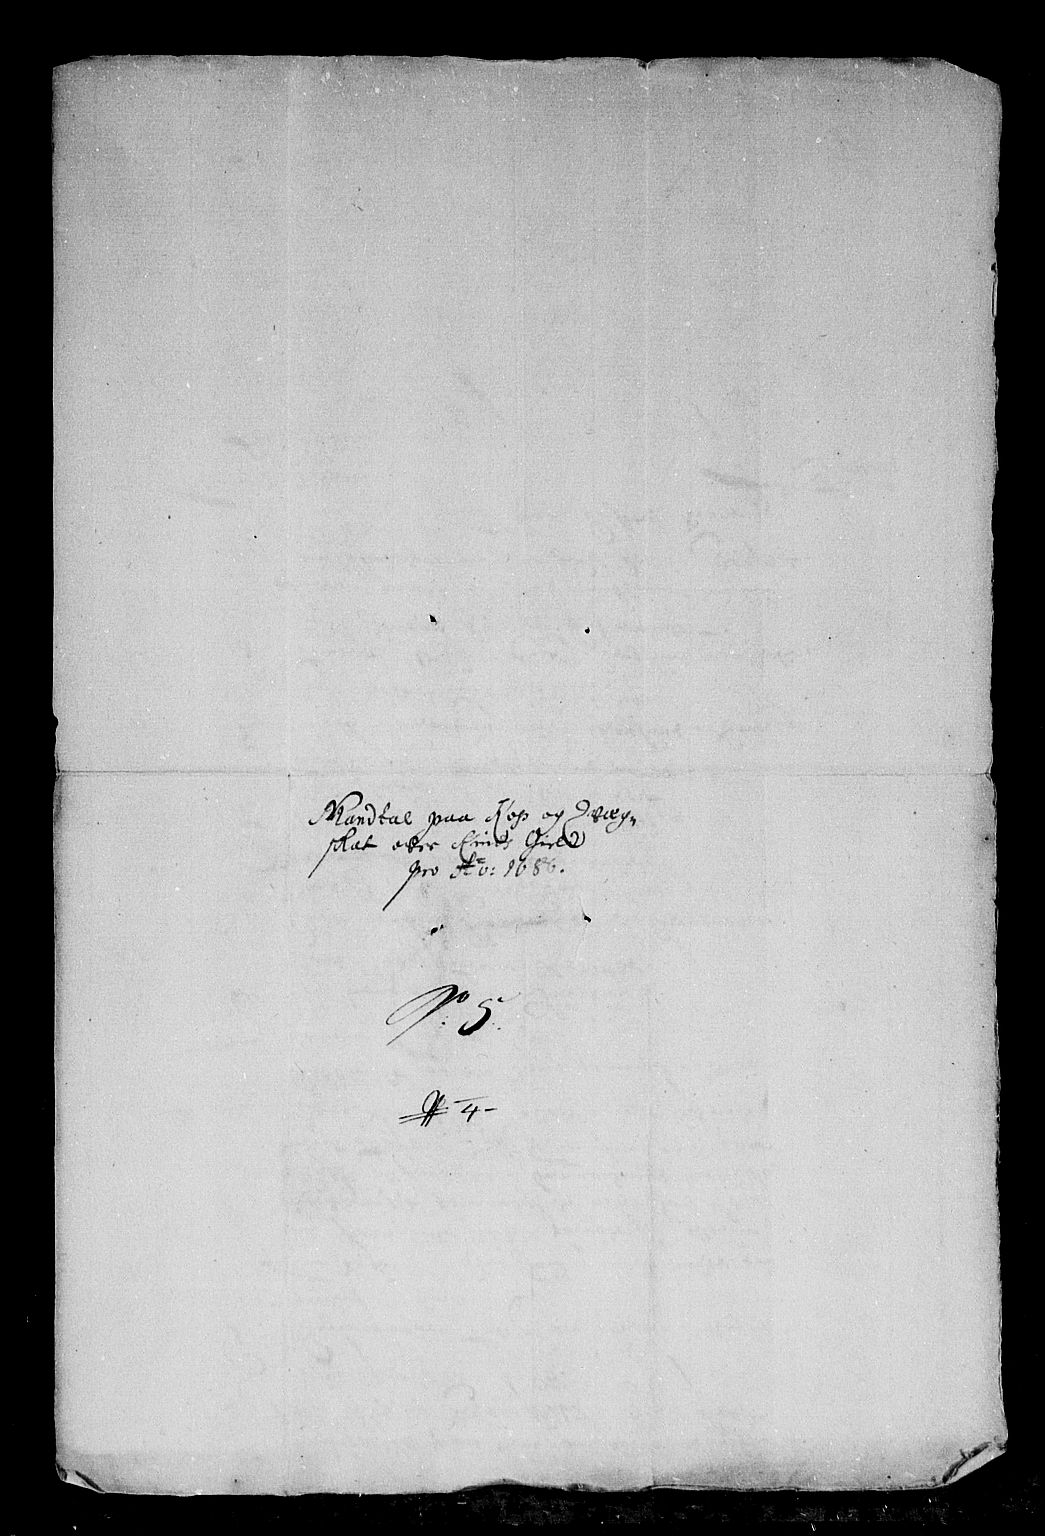 Mandtal paa Kop og Qvæg,
skat over
pro Ao: 1686.
No 5.
4-